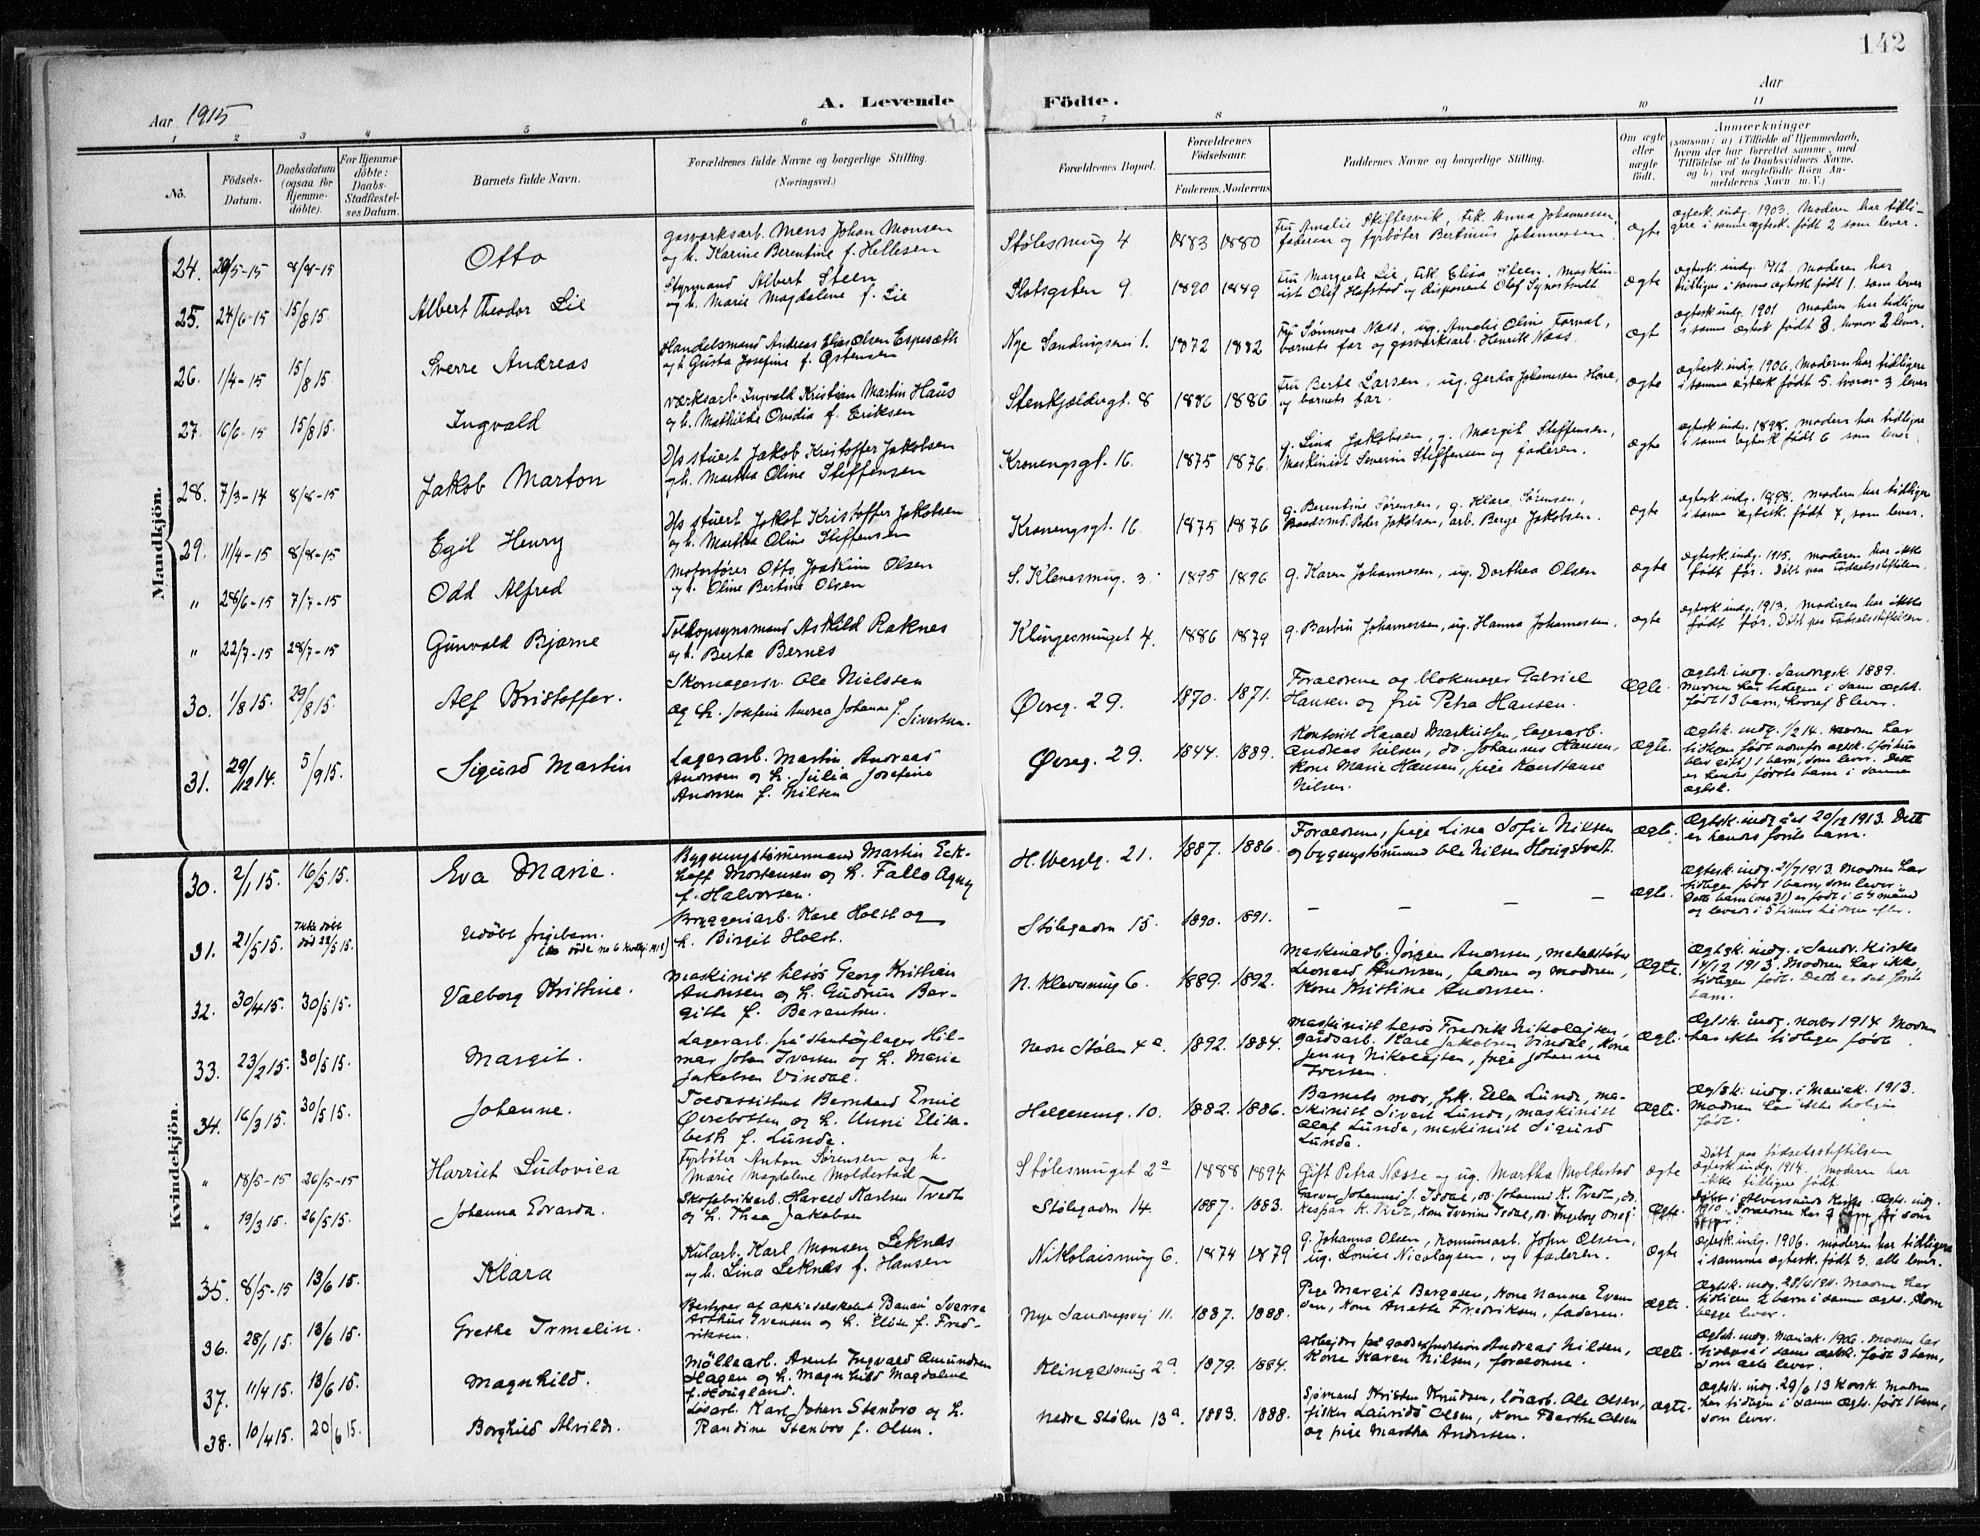 142
Aar 1915
A. Levende Födte.
Aar
1 2 3 4 5 6 7 8 9 10 11
No.
Födsels-Datum.
Daabsdatum (ogsaa for Hjemme-döbte).
For Hjemme-döbte: Daabs-Stadfæstel-ses Datum.
Barnets fulde Navn.
Forældrenes fulde Navne og borgerlige Stilling.
(Næringsvei.)
Forældrenes Bopæl.
Forældrenes Födselsaar.
Faderens. Moderens.
Faddernes Navne og borgerlige Stilling.
Om ægte eller uægte födt.
Anmærkninger
(saasom: a) i Tilfælde af Hjemmedaab, hvem der har forrettet samme, med Tilföielse af to Daabsvidners Navne, og b) ved uægtefödte Börn An-melderens Navn m. V.)
Mandkjön.
24. 29/5-15 8/8-15 Otto
gasverksarb. Mens Johan Monsen
og h. Karine Berentine f. Hellesen
Stølesmug 4 1883 1880
faderen og fyrbøter Bertinius Johannessen
ægte
ægtesk. indg. 1903. Moderen har tidli-
gere i samme ægtesk. født 2 som lever.
25. 24/6-15 15/8 15 Albert Theodor Lie
Styrmand Albert Steen
og h. Marie Magdalene f. Lie
Slotsgaten 9 1890 1889
Fru Margrete Lie, frk Elisa Steen. Maskin-
ist Olaf Hafstad og disponent Olaf
ægte
ægtesk. indg. 1912, moderen har
tidligere i samme ægtesk født 1. som lever
26. 1/4-15 15/8 15 Sverre Andreas
Handelsmand Andreas Elias Olsen Espesæth
og h Gusta Josefine f. Østensen
Nye Sandvigsvei 1. 1872 1882
Fru Sønneve Næss, ug. Amalie Oline
barnets far og gasverksarb. Henrik Næss.
ægte
ægtesk indg. 1901 moderen har tidligere
i samme ægtesk født 3, hvorav 2 lever.
27. 16/6-15 15/8 15. Ingvald
værksarb. Ingvald Kristian Martin Haus
og h. Mathilde Ovidia f. Eriksen
Stenkjeldergt. 8 1886 1886
Fru Berte Larsen, ug. Gerda Johannessen
og barnets far.
ægte
ægtesk. indg. 1906. Moderen har tidligere
i samme ægtesk født 5. hvorav 3 lever
28. 7/3-14 8/8-15 Jakob Marton
D/s stuert Jakob Kristoffer Jakobsen
og h. Martha Oline Steffensen
Kronengsgt. 16. 1875 1876.
g. Lina Jakobsen, g. Margit Steffensen,
Maskinist Severin Steffensen og faderen.
ægte
ægtesk indg. 1898. modern har tidligere
i samme ægtesk født 6 som lever
29. 11/4-15 8/8-15 Egil Henry
D/s stuert Jakob Kristoffer Jakobsen
og h. Martha Oline Steffensen
Kronengsgt. 16 1875 1876
g. Berentine Sørensen, g. Klara Sørensen,
Baadsmd. Peder Jakobsen, arb. Berge Jakobsen.
ægte
ægtesk indg. 1898. modern har tidligere
i samme ægtesk. født 7, som lever.
" 28/6-15 7/7-15 Odd Alfred
Motorfører Otto Joakim Olsen
og h. Oline Bertine Olsen
S. Klevesmug. 3. 1895 1896
g. Karen Johannesen, ug. Dorthea Olsen
ægte
ægtesk. indg. 1915, moderen har ikke
født før. Døbt paa Fødselsstiftelsen.
" 22/7-15 28/7-15 Gunvald Bjarne
Toldopsynsmand Askild Raknes
og h. Berta Bernes
Klingesmuget 4. 1886 1879
g. Barbra Johannessen, ug. Hanna Johannesen,
ægte
ægtesk. indg. 1913. moderen har ikke
født før. Døbt paa Fødselsstiftelsen.
30. 1/8 15. 29/8 15. Alf Kristoffer.
Skomagersv. Ole Nielssen
og h. Josefine Andrea Johanne f. Sivertsen.
Øvreg. 29. 1870. 1871.
Forældrene og blokmager Gabriel
Hansen og fru Petra Hansen.
Ægte.
Ægtsk indg. Sandvigsk 1889.
født 13 barn, hvoraf 8 lever.
31. 29/12 14. 5/9 15. Sigurd Martin
Lagerarb. Martin Andreas
Andersen og h. Julia Josefine
Andersen f. Nilsen
Øvreg. 29. 1844. 1889.
Kontorist Harald Markussen, lagerarb.
Andreas Nilsen, do. Johannes Hansen,
Kone Marie Hansen, pige Konstanse
Nilsen.
ægte.
Ægtsk. indg. 1/2 14.
blev gift) 1 barn, som lever. Dette
er hendes første barn i samme
ægtsk.
Kvindekjön.
30. 2/1 15. 16/5 15. Eva Marie.
Bygningstømmermand Martin Eck-
hoff Mortensen og h. Falla Agny
f. Halvorsen.
H. Wergelg. 21. 1887. 1886.
Forældrene, pige Lina Sofie Nilsen
og bygningstømmermd Ole Nilsen Hougstvedt.
ægte.
Ægtsk. indgået 20/12 1913. Dette
er hendes første barn.
31. 21/5 15. Ikke døbt død 22/5 15. Udøbt pigebarn.
(se døde no 6 Kvkj. 1915)
Bryggeriarb. Kare Holst og
h. Birgit Holst.
Stølegaden 15. 1890. 1891.
– – – –
ægte.
Ægtesk. indg. 21/7 1913. Modren har
tidligere født 1 barn, som lever.
Dette barn (no 31) er født i 6te måned
og levede i 5 timer
32. 30/4 15. 30/5 15. Valborg Kristine.
Maskinist Georg Kristian
Andersen og h. Gudrun Ber-
gitte f. Berentsen.
N. Klevesmug 6. 1889. 1892.
Maskinarb. Jørgen Andersen, metalstøber
Leonard Andersen, faderen og modren,
Kone Kristine Andersen.
Ægte.
Ægtsk. indg. i Sandv. Kirke
14/12 1913. Modren har ikke
tidligere født. Dette er det første
barn.
33. 23/2 15. 30/5 15. Margit.
Lagerarb. på stentøylager Hil-
mar Johan Iversen og h. Marie
Jakobsen Vindal.
Nedre Stølen 4a. 1892. 1884.
Maskinist Fredrik Nikolaisen,
gårdsarb. Kare Jakobsen Vindal, Kone
Jenny Nikolaisen, pige Johanne
Iversen.
Ægte.
Ægtsk. indg. novbr 1914 Modren
har ikke tidligere født.
34. 16/3 15. 30/5 15. Johanne.
Toldassistent Bernhard Emil
Øvrebotten og h. Unni Elisa-
beth f. Lunde.
Helgesmug. 10. 1882. 1886.
Barnets mor, frk. Ella Lunde, ma-
skinist Sivert Lunde, maskinist
Olaf Lunde, maskinist Sigurd
Lunde.
Ægte.
Ægtsk. indg. i Mariek. 1913.
Modren har ikke tidligere
født.
" 18/5-15 26/5-15 Harriet Ludovica
Fyrbøter Anton Sørensen og h.
Marie Magdalene Moldestad
Stølesmuget 2a 1888 1894
Gift Petra Næsse og ug. Martha Moldestad
ægte
Døbt paa fødselsstiftelsen
ægtesk indg. 1914. moderen har
ikke tidligere født.
" 19/3 15. 26/5 15. Johanna Edvarda.
Skofabrikarb. Harald Karlsen Tvedt
og h. Thea Jakobsen
Stølegaden 14. 1887. 1883.
Garver Johannes J. Isdal, do. Johannes K. Tvedt, do.
Kaspar K. Tvedt, Kone Iverine Isdal, do. Ingeborg
Ægte.
Døbt i Alversunds Kirke. Ægts. indg.
1910.
35. 8/5-15 13/6 15. Klara
Kularb. Karl Monsen Leknes
og h. Lina Leknes f. Hansen
Nikolaismug 6. 1874 1879
g. Johanna Olsen, kommunarb. John Olsen,
ug. Lovise Nicolaysen, og faderen.
ægte
ægtesk. indg. 1906. moderen har tidligere
i samme ægtesk. født 3. alle lever.
36. 28/1 15. 13/6 15. Grethe Irmelin.
Bestyrer af aktieselskabet Banan Sverre
Arthur Ivensen og h. Elise f. Fred-
riksen.
Nye Sandvigsvej 11. 1887. 1888.
Pige Margit Bergesen, Kone Nanna Even-
sen, Kone Anette Fredriksen, faderen.
ægte.
tidligere 2 barn i samme ægts., som
begge lever.
37. 11/4 15. 13/6 15. Magnhild.
Møllearb. Arent Ingvald Amundsen
Hagen og h. Magnhild Magdalene
f. Hougland.
Klingesmug 2a 1879. 1884.
Arbejder på Andreas Nilsen,
Kone Karen Nilsen, forældrene.
ægte.
Ægtsk. indg. Mariek. 1906. Modren har
tidligere i samme ægtsk. født 3 barn,
som alle lever.
38. 10/4 15. 20/6 15. Borghild Alvilde.
Løsarb. Karl Johan Stenbro og h.
Randine Stenbro f. Olsen.
Nedre Stølen 13a. 1883. 1888.
Sjømand Kristen Knudsen, løsarb. Ole Olsen,
fisker Laurids Olsen, Kone Berthe Olsen
og pige Martha Andersen.
ægte.
Ægtsk. indg. 29/6 13 Korsk. Modren
har tidligere i samme ægts. født 1 barn,
som lever.